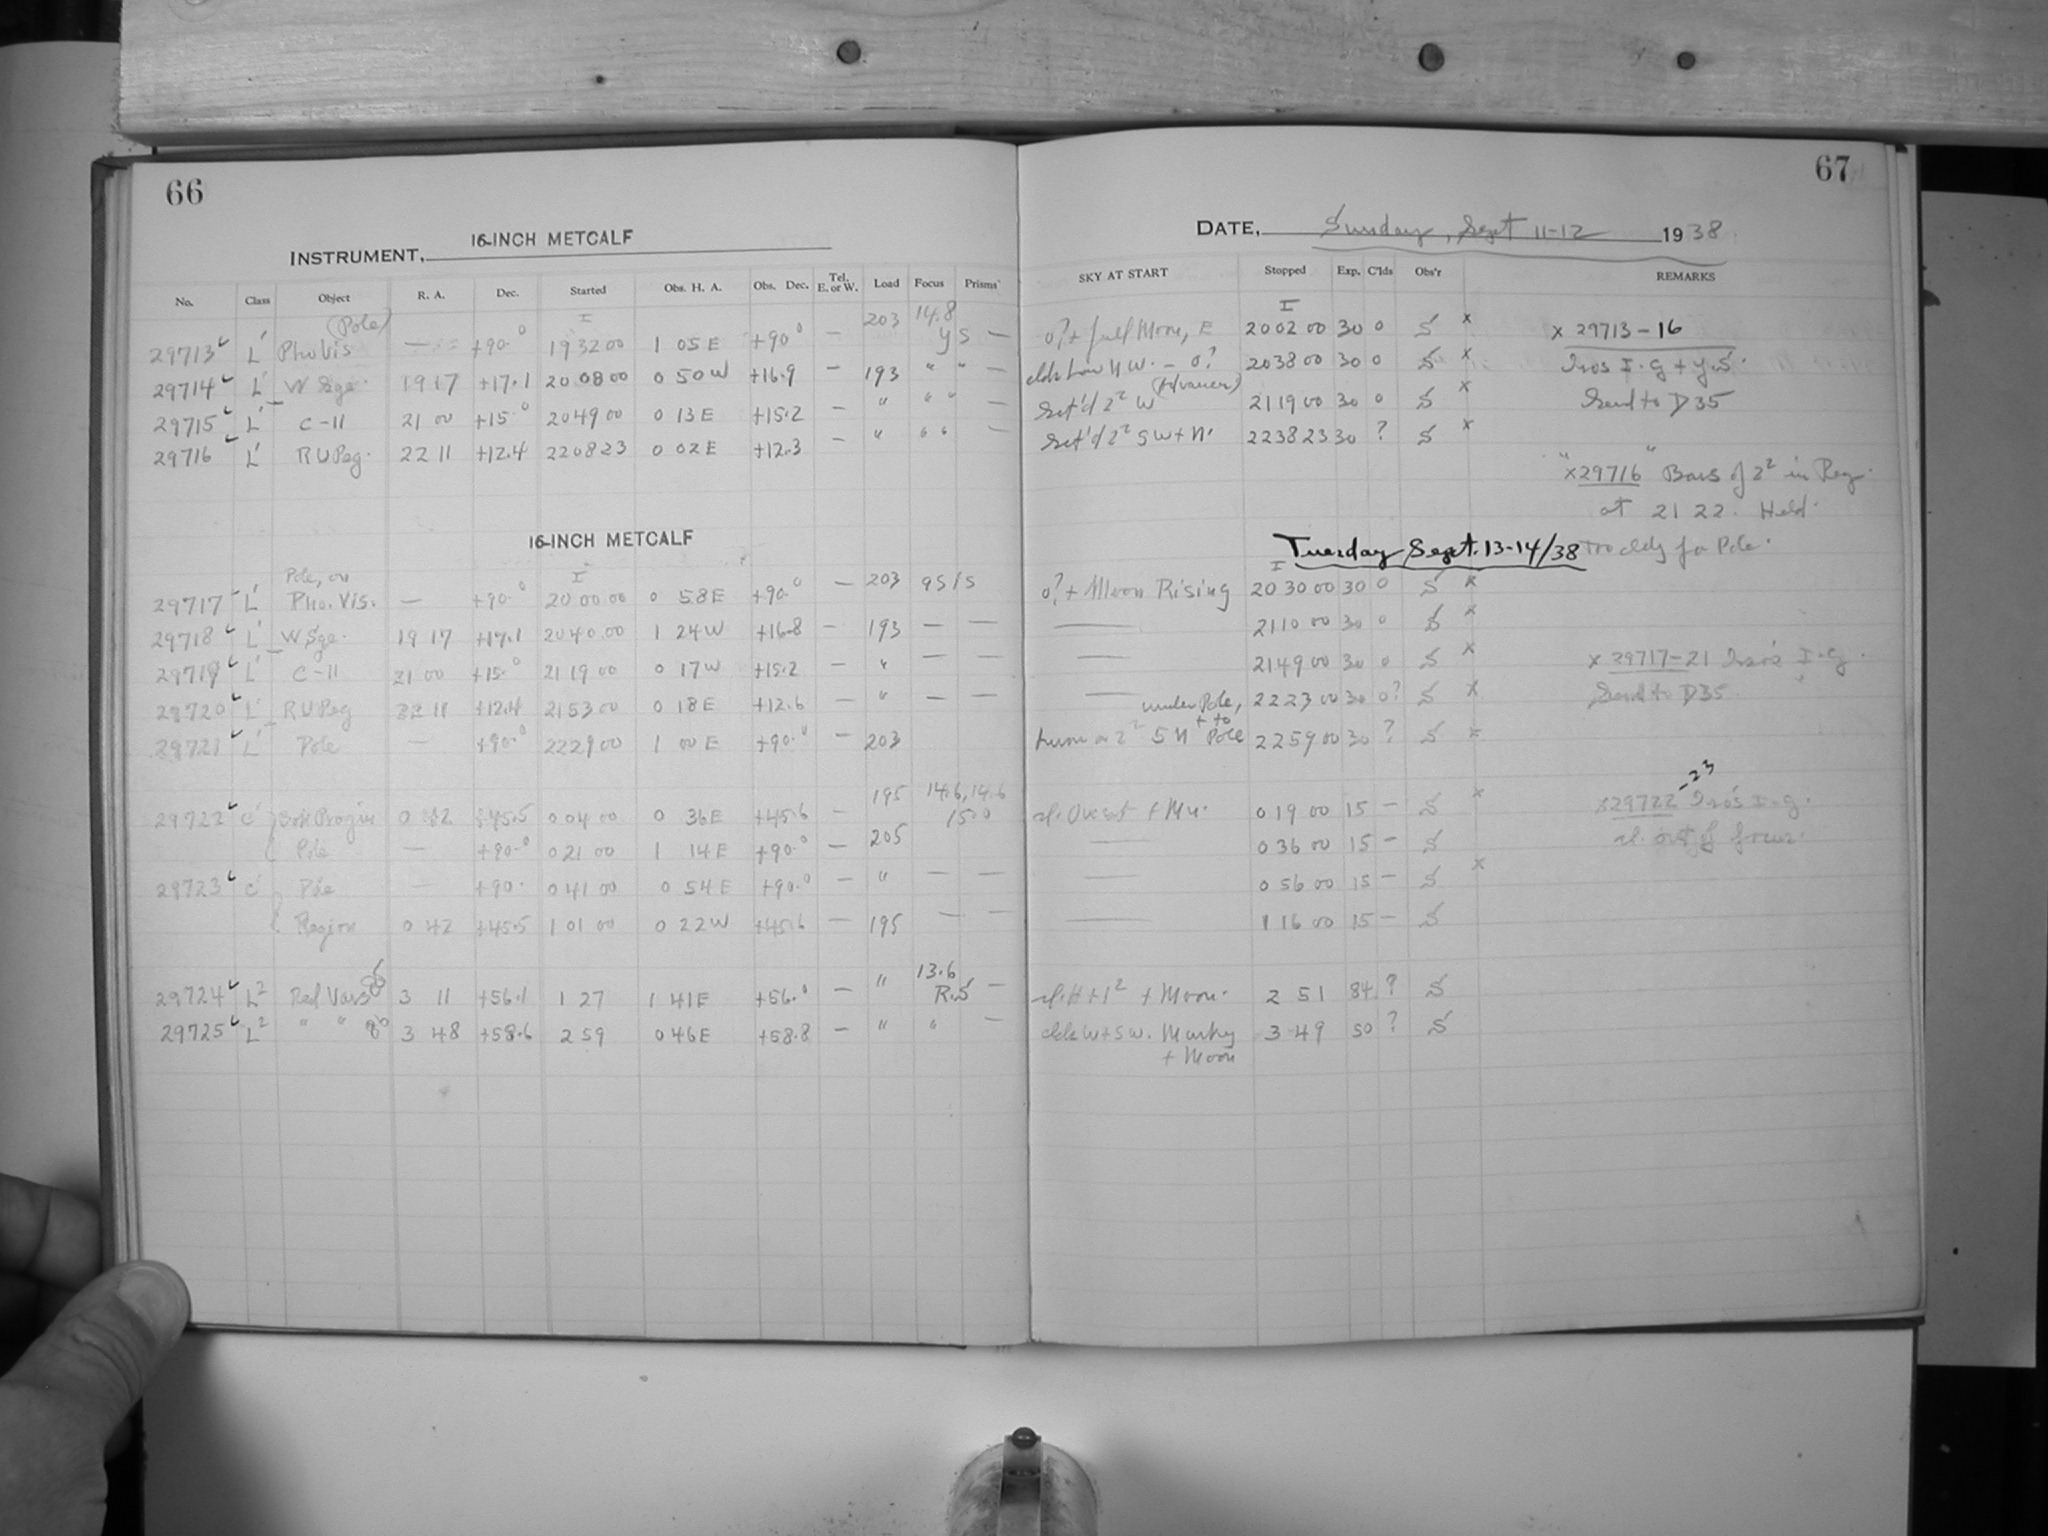 66
INSTRUMENT, 16-INCH METCALF
No. Class Object R. A. Dec. Started Obs. H. A. Obs. Dec. Tel. E. or W. Load Focus Prisms
(Pole) I 203 14.8
29713 L' Pho Vis — +90.0 19 32 00 1 05 E +90.0 — Y S —
29714 L' W Sge. 19 17 +17.1 20 08 00 0 50 W +16.9 — 193 " " —
29715 L' C-11 21 00 +15.0 20 49 00 0 13 E +15.2 — " " " —
29716 L' RU Peg. 22 11 +12.4 22 08 23 0 02 E +12.3 — " " " —
16-INCH METCALF
Pole, on I
29717 L' Pho. Vis. — +90.0 20 00 00 0 58 E +90.0 — 203
29718 L' W Sge. 19 17 +17.1 20 40 00 1 24 W +16.8 — 193 — —
29719 L' C-11 21 00 +15.0 21 19 00 0 17 W +15.2 — " — —
29720 L' RU Peg 22 11 +12.4 21 53 00 0 18 E +12.6 — " — —
29721 L' Pole — +90.0 22 29 00 1 00 E +90.0 — 203
29722 C' 0 42 +45.5 0 04 00 0 36 E +45.6 — 195 14.6, 14.6 15.0
Pole — +90.0 0 21 00 1 14 E +90.0 — 205
29723 C' Pole — +90. 0 41 00 0 54 E +90.0 — " — —
Region 0 42 +45.5 1 01 00 0 22 W +45.6 — 195 — —
29724 L2 Red Vars 3 11 +56.1 1 27 1 41 E +56.0 — " 13.6 R.S —
29725 L2 " " 3 48 +58.6 2 59 0 46 E +58.8 — " " —
67
DATE, Sunday, Sept 11-12 1938.
SKY AT START Stopped Exp. C'lds Obs'r REMARKS
I
0? + full Moon, E 20 02 00 30 0 S x x 29713-16
clds low NW. — 0? 20 38 00 30 0 S x I.G + Y.S.
2² W 21 19 00 30 0 S x Send to D35
2² SW + N. 22 38 23 30 ? S x
"x29716" Bars of 2² in Peg.
at 21 22. Held.
Tuesday Sept. 13-14/38 Too cldy for Pole.
I
0? + Moon Rising 20 30 00 30 0 S x
—— 21 10 00 30 0 S x
—— 21 49 00 30 0 S x x 29717-21 I.G.
—— 22 23 00 30 0? S x Send to D35
under Pole,
+ to
2² 5 N Pole 22 59 00 30 ? S x
-23
0 19 00 15 — S x x29722 I.G.
—— 0 36 00 15 — S out of focus.
—— 0 56 00 15 — S x
—— 1 16 00 15 — S
+ Moon. 2 51 84 ? S
clds W + SW. Murky 3 49 50 ? S
+ Moon